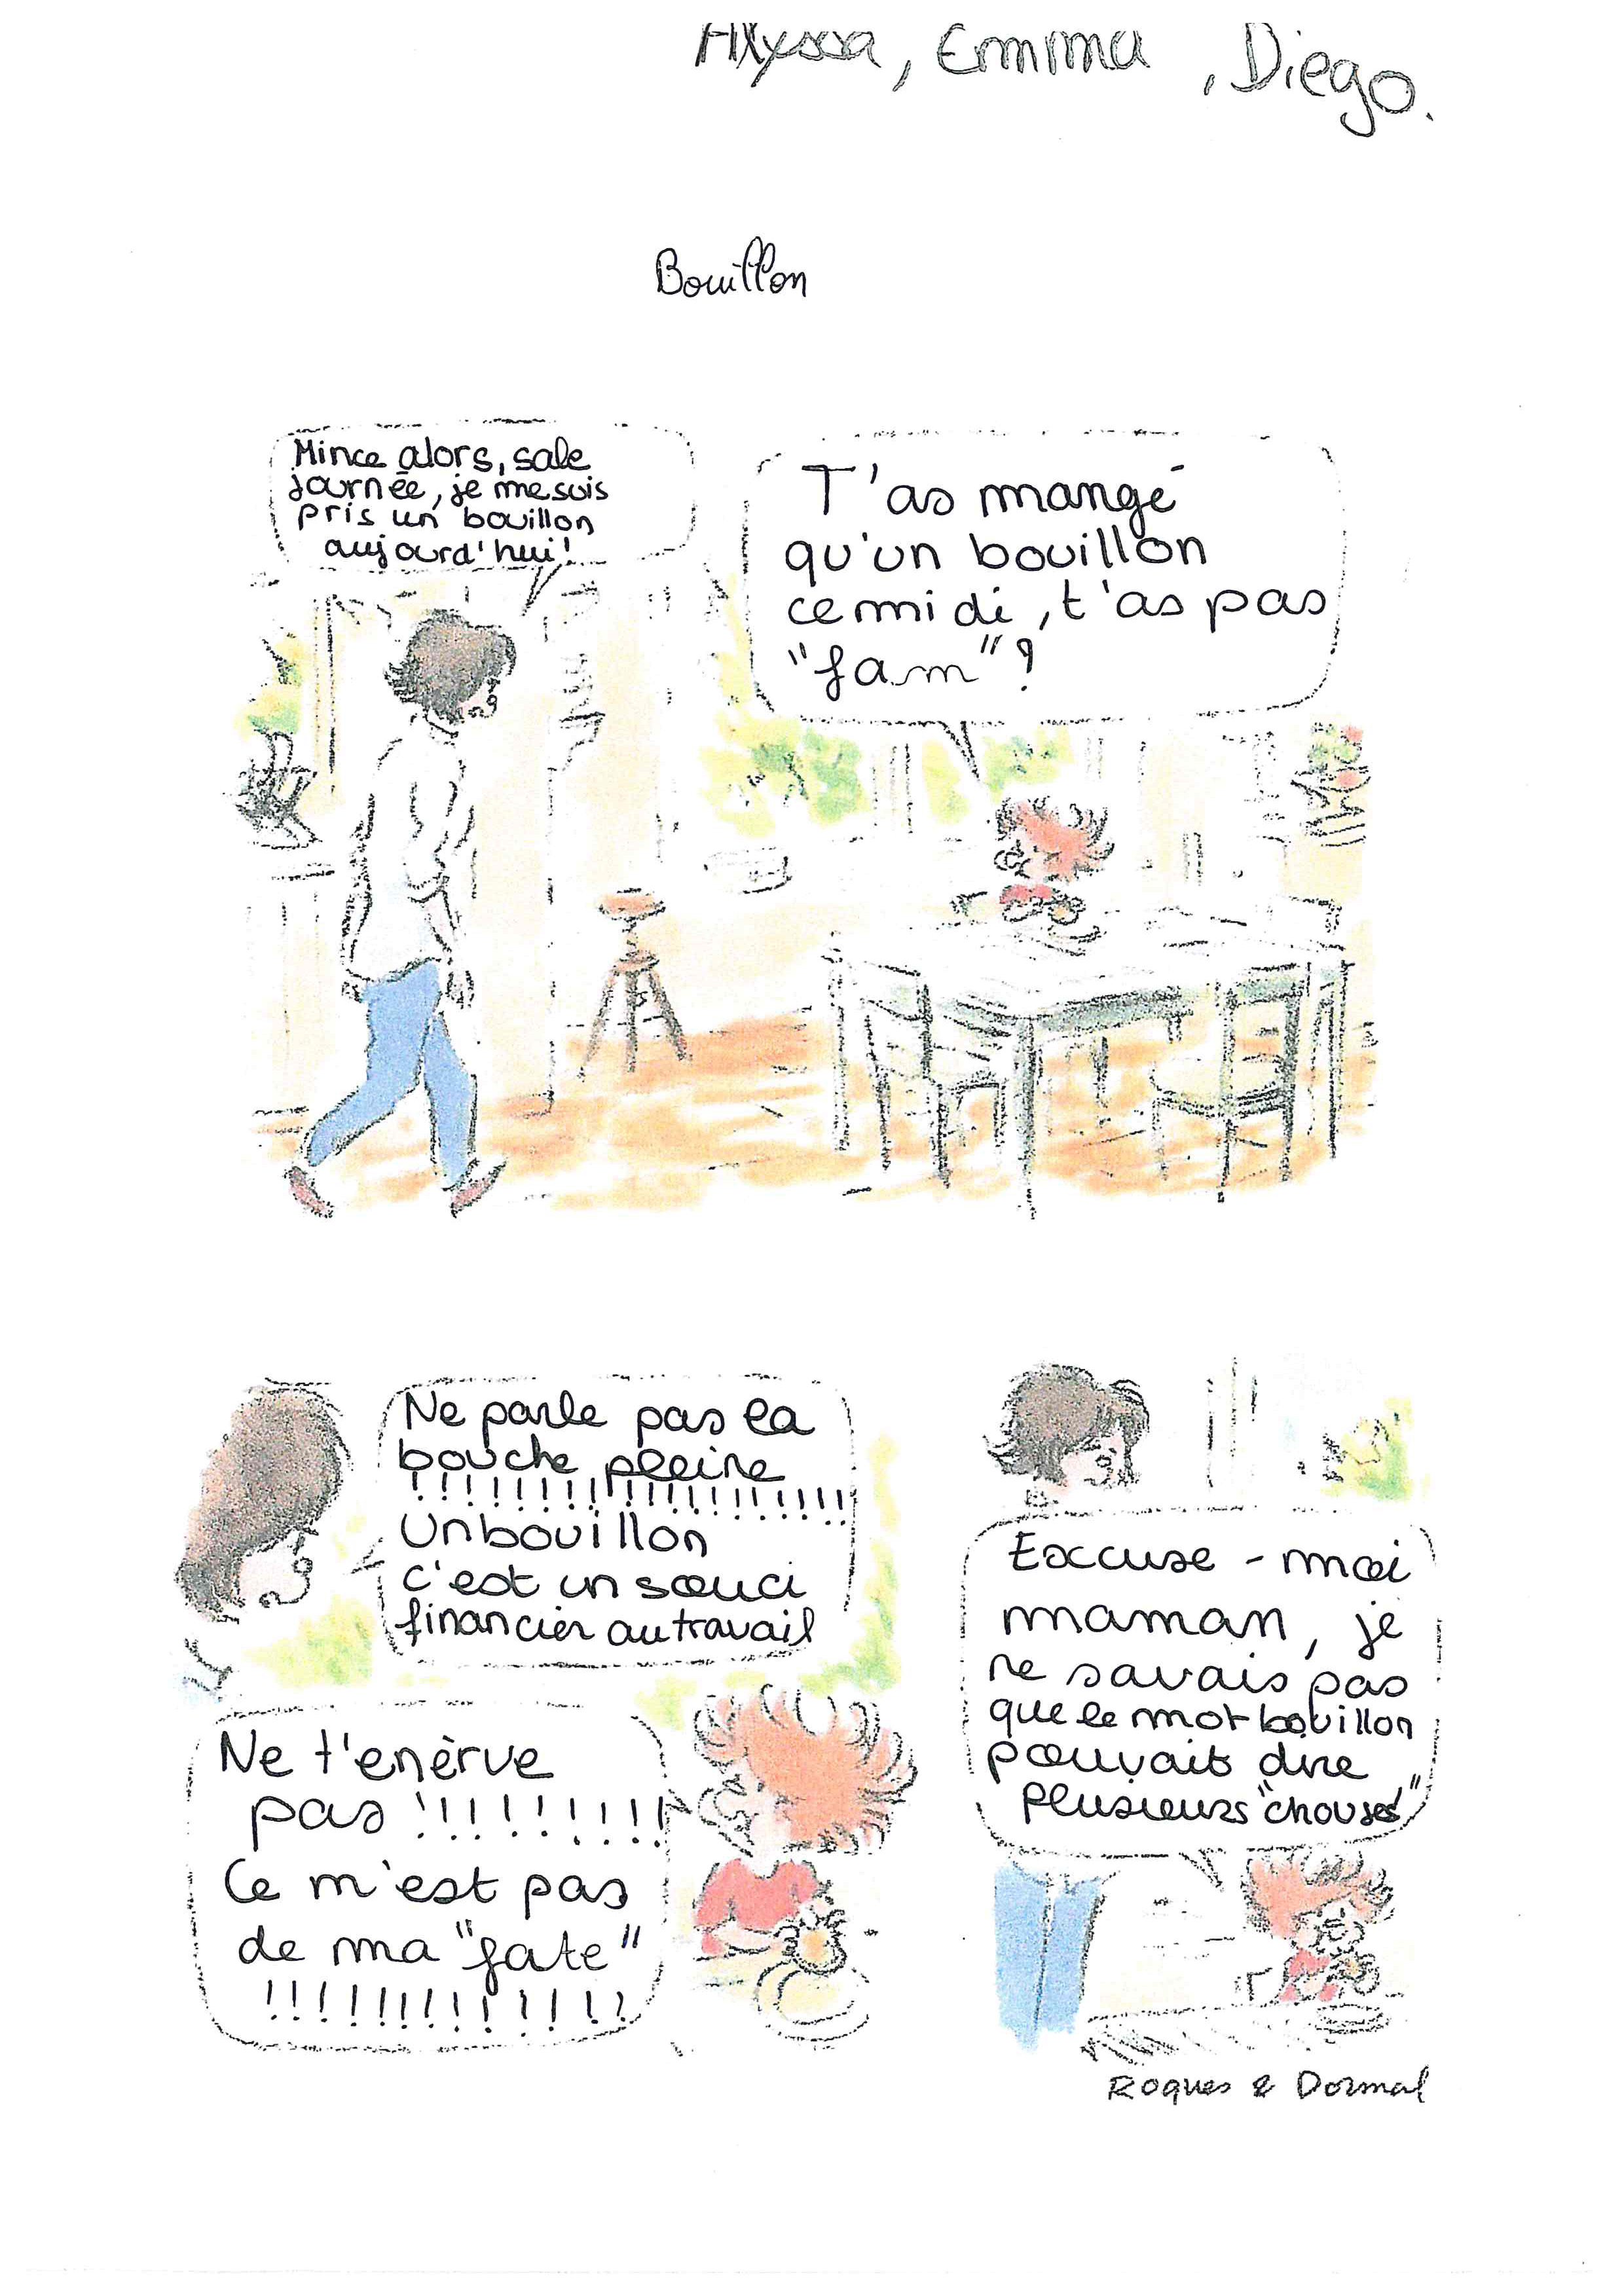 Alyssa, Emma, Diego.
Bouillon
Mince alors, sale
journée, je me suis
pris un bouillon
aujourd'hui!
T'as mangé
qu'un bouillon
ce midi, t'as pas
"fam"?
Ne parle pas la
bouche pleine
!!!!!!!!!!!!!!!!!!!!
Un bouillon
c'est un souci
financier au travail
Ne t'enèrve
pas !!!!!!!!!
Ce m'est pas
de ma "fate"
!!!!!!!!!!!!!!
Excuse-moi
maman, je
ne savais pas
que le mot bouillon
pouvait dire
plusieurs "chouses"
Roques & Dormal